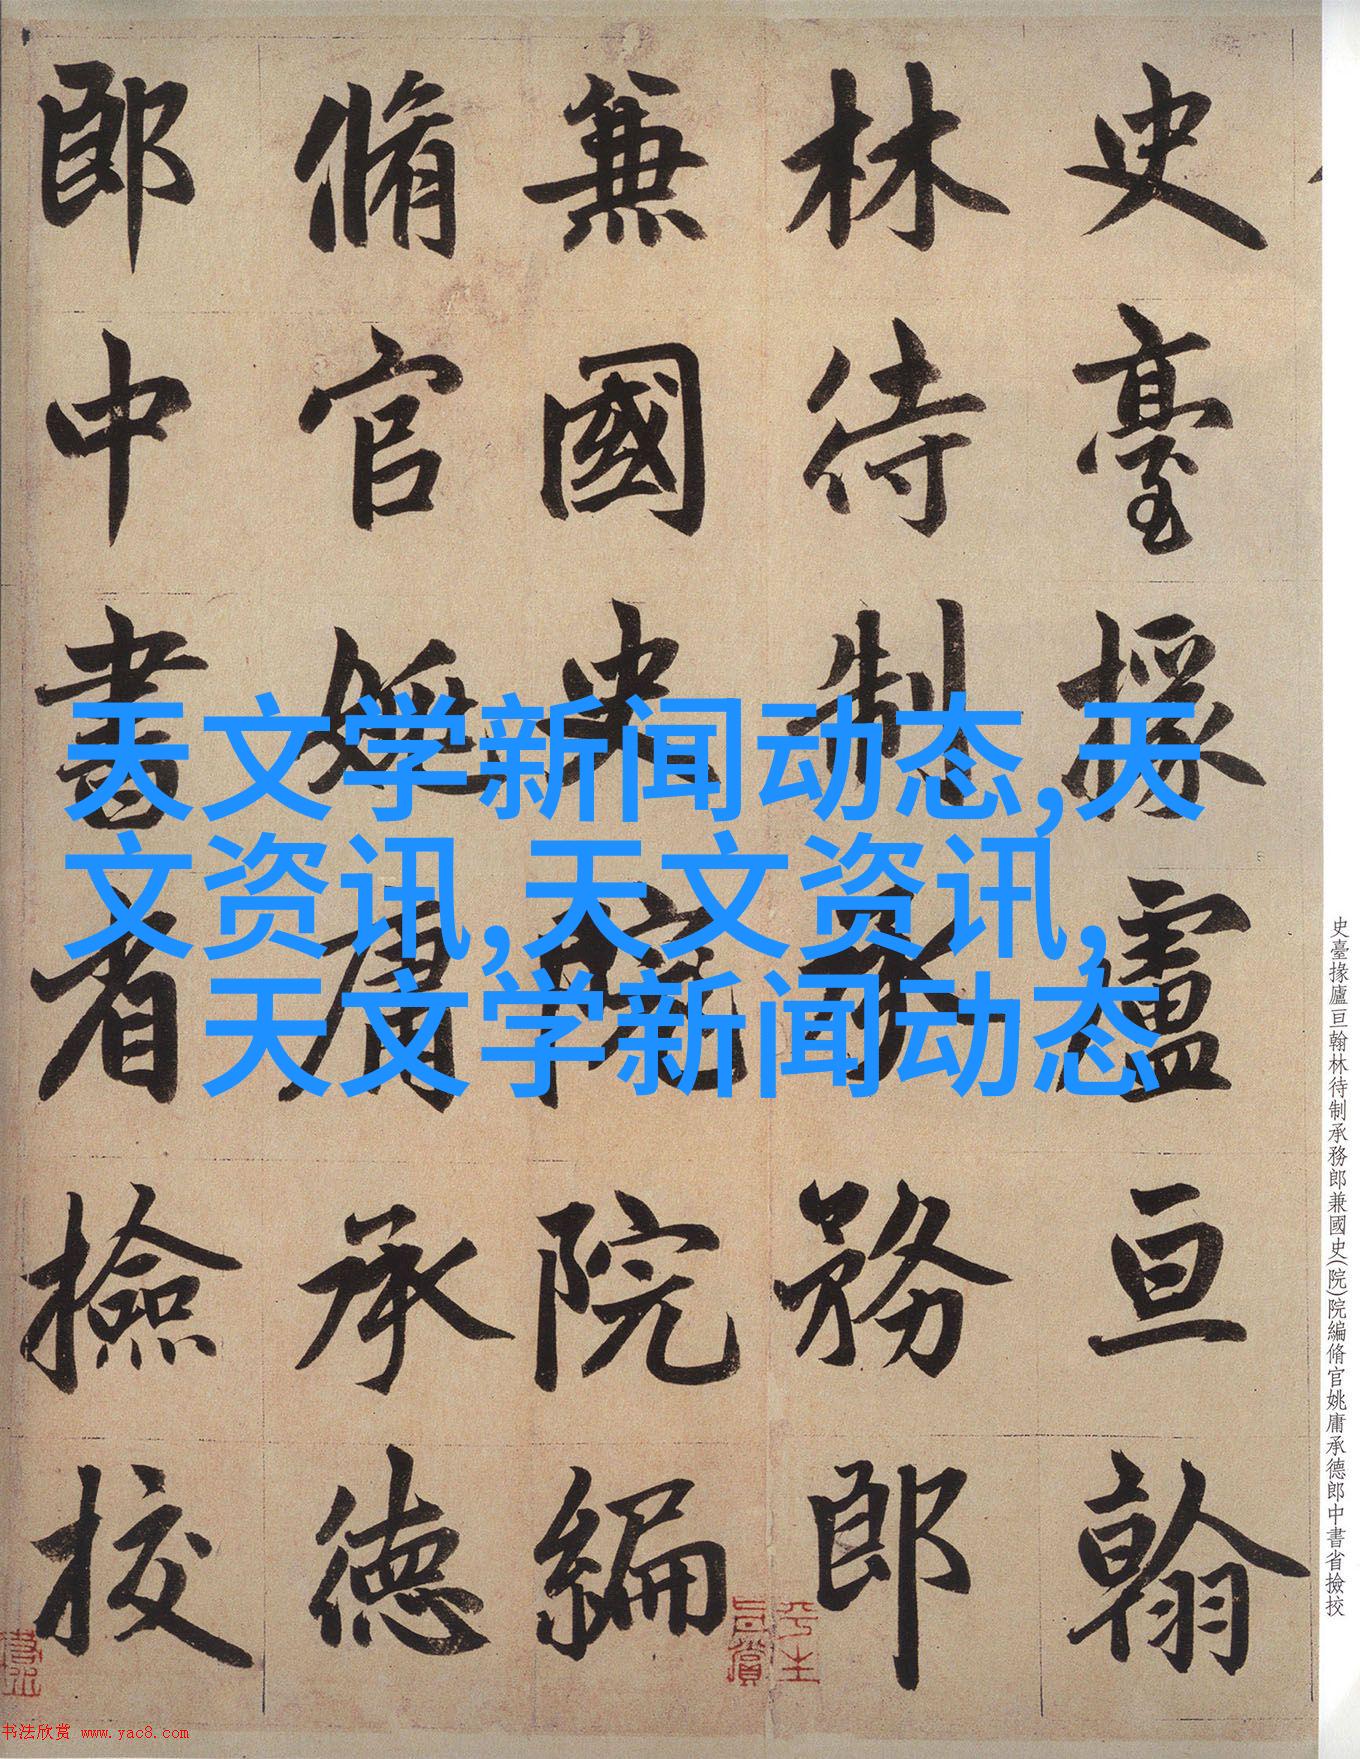 史臺掾盧亘翰
林待制承務郎
兼國史院院編
脩官姚庸承德
郎中書省撿挍
天文学新闻动态,天
文资讯,天文资讯,
天文学新闻动态
史臺掾廬亘翰林待制承務郎兼國史(院)院編脩官姚庸承德郎中書省撿挍
平生
真賞
书法欣赏 www.yac8.com